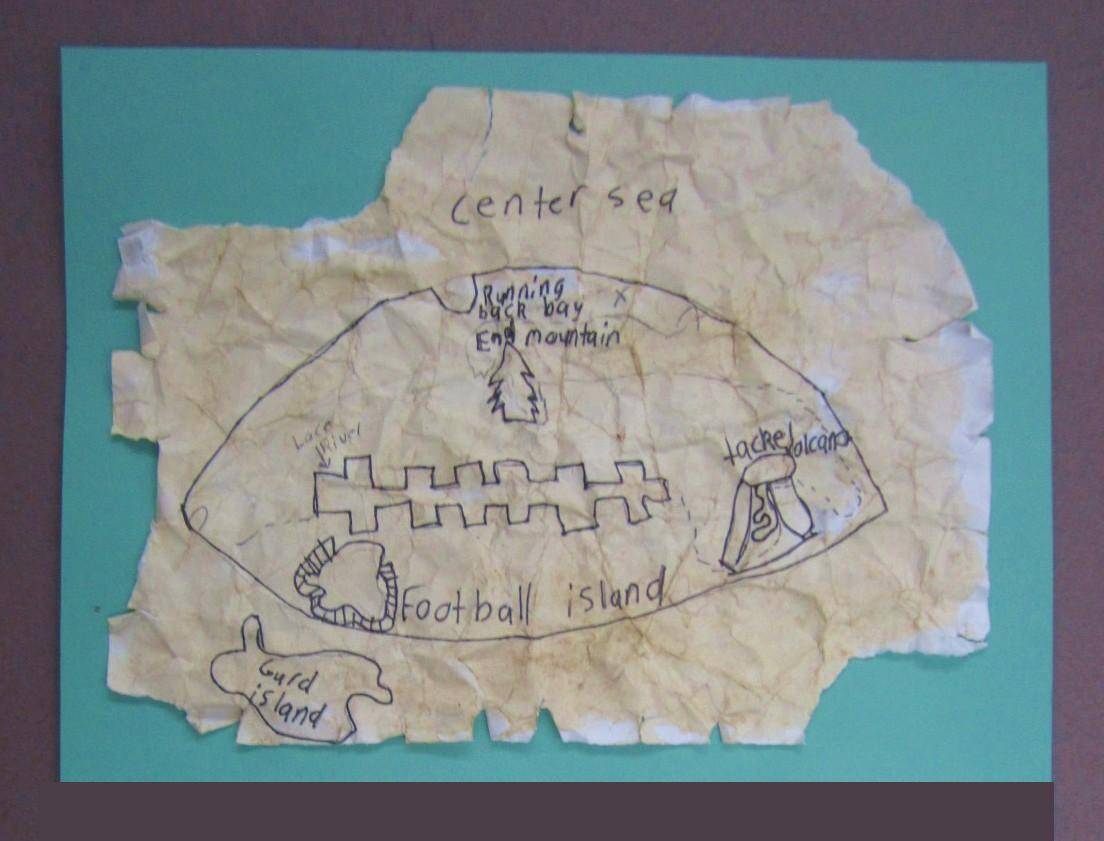 center sea
Running
back bay
End mountain
Lace
River
tackel volcano
Football island
Gurd
island